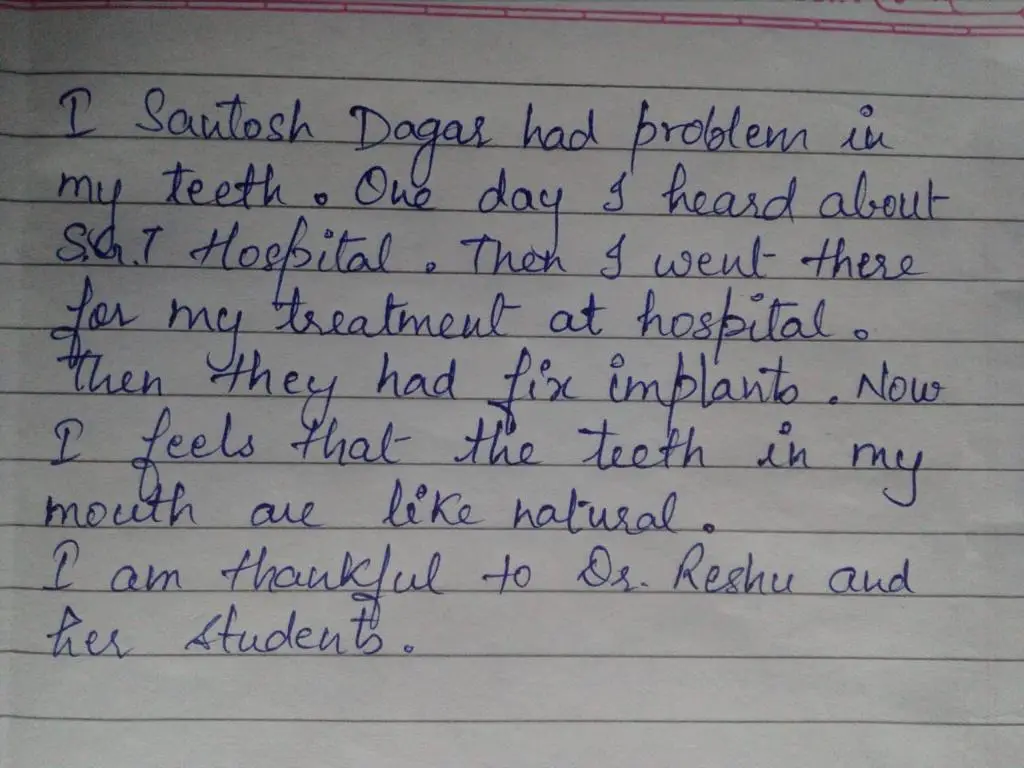 I Santosh Dagar had problem in
my teeth. One day I heard about
S.G.T Hospital. Then I went there
for my treatment at hospital.
Then they had fix implants. Now
I feels that the teeth in my
mouth are like natural.
I am thankful to Dr. Reshu and
her students.